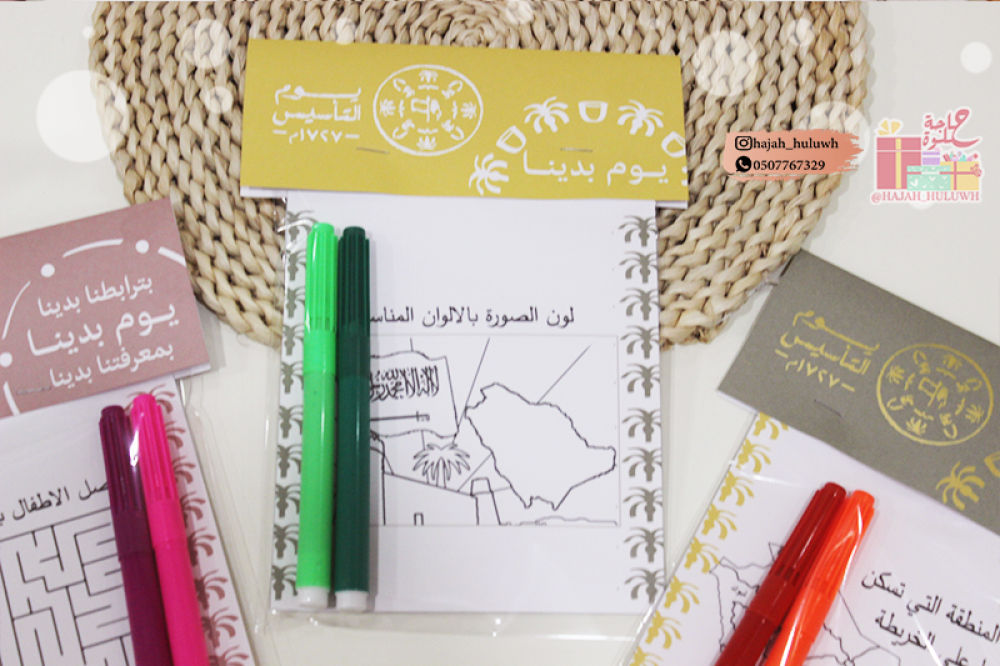 يوم
التأسيس
١٧٢٧م
يوم بدينا
hajah_huluwh
0507767329
حاجة
حلوة
@HAJAH_HULUWH
بترابطنا بدينا
يوم بدينا
بمعرفتنا بدينا
لون الصورة بالالوان
لا إله إلا الله محمد رسول
يوم
التأسيس
١٧٢٧م
الاطفال
المنطقة التي تسكن
على الخريطة